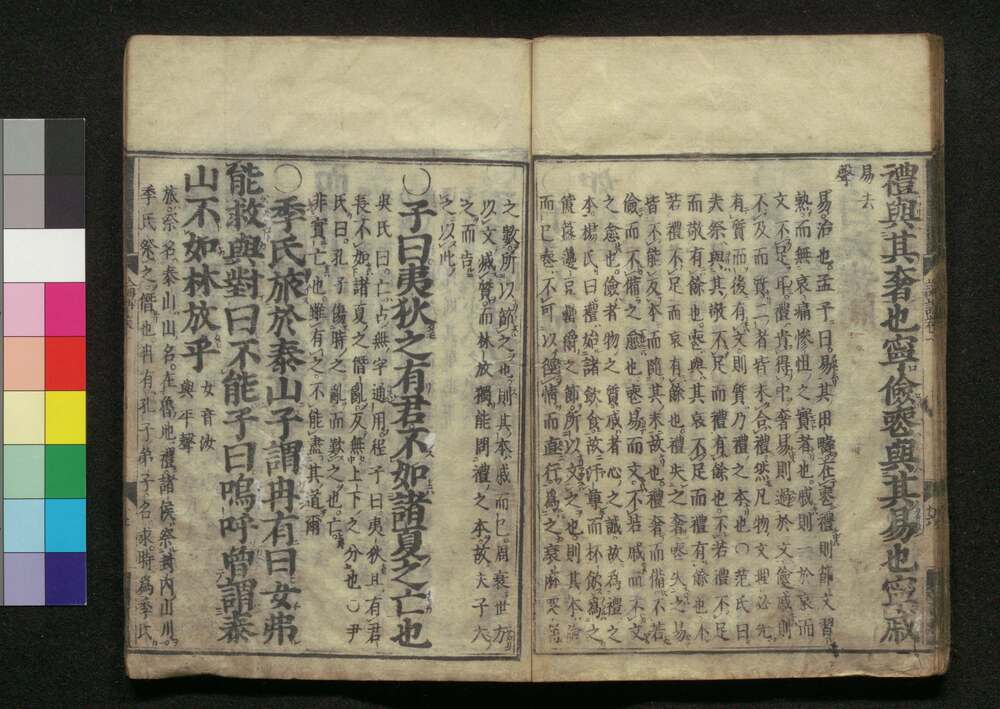 禮與其奢也寧儉喪與其易也寧戚
易去
聲
易治也孟子曰易其田疇在喪禮則節文習
熟而無哀痛慘怛之實者也戚則一於哀而
文不足耳禮貴得中奢易則過於文儉戚則
不及而質二者皆未合禮然凡物之理必先
有質而後有文則質乃禮之本也○范氏曰
夫祭與其敬不足而禮有餘也不若禮不足
而敬有餘也喪與其哀不足而禮有餘也不
若禮不足而哀有餘也禮失之奢喪失之易
皆不能反本而隨其末故也禮奢而備不若
儉而不備之愈也喪易而文不若戚而不文
之愈也儉者物之質戚者心之誠故為禮之
本楊氏曰禮始諸飲食故汙尊而杯飲為之
簠簋籩豆罍爵之飾所以文之也則其本儉
而已喪不可以徑情而直行為之衰麻哭踊
之數所以節之也則其本戚而已周衰世方
以文滅質而林放獨能問禮之本故夫子大
之而告
之以此
○子曰夷狄之有君不如諸夏之亡也
吳氏曰亡古無字通用程子曰夷狄且有君
長不如諸夏之僭亂反無上下之分也○尹
氏曰孔子傷時之亂而歎之也亡
非實亡也雖有之不能盡其道爾
○季氏旅於泰山子謂冉有曰女弗
能救與對曰不能子曰嗚呼曾謂泰
山不如林放乎
女音汝
與平聲
旅祭名泰山山名在魯地禮諸侯祭封內山川
季氏祭之僭也冉有孔子弟子名求時為季氏